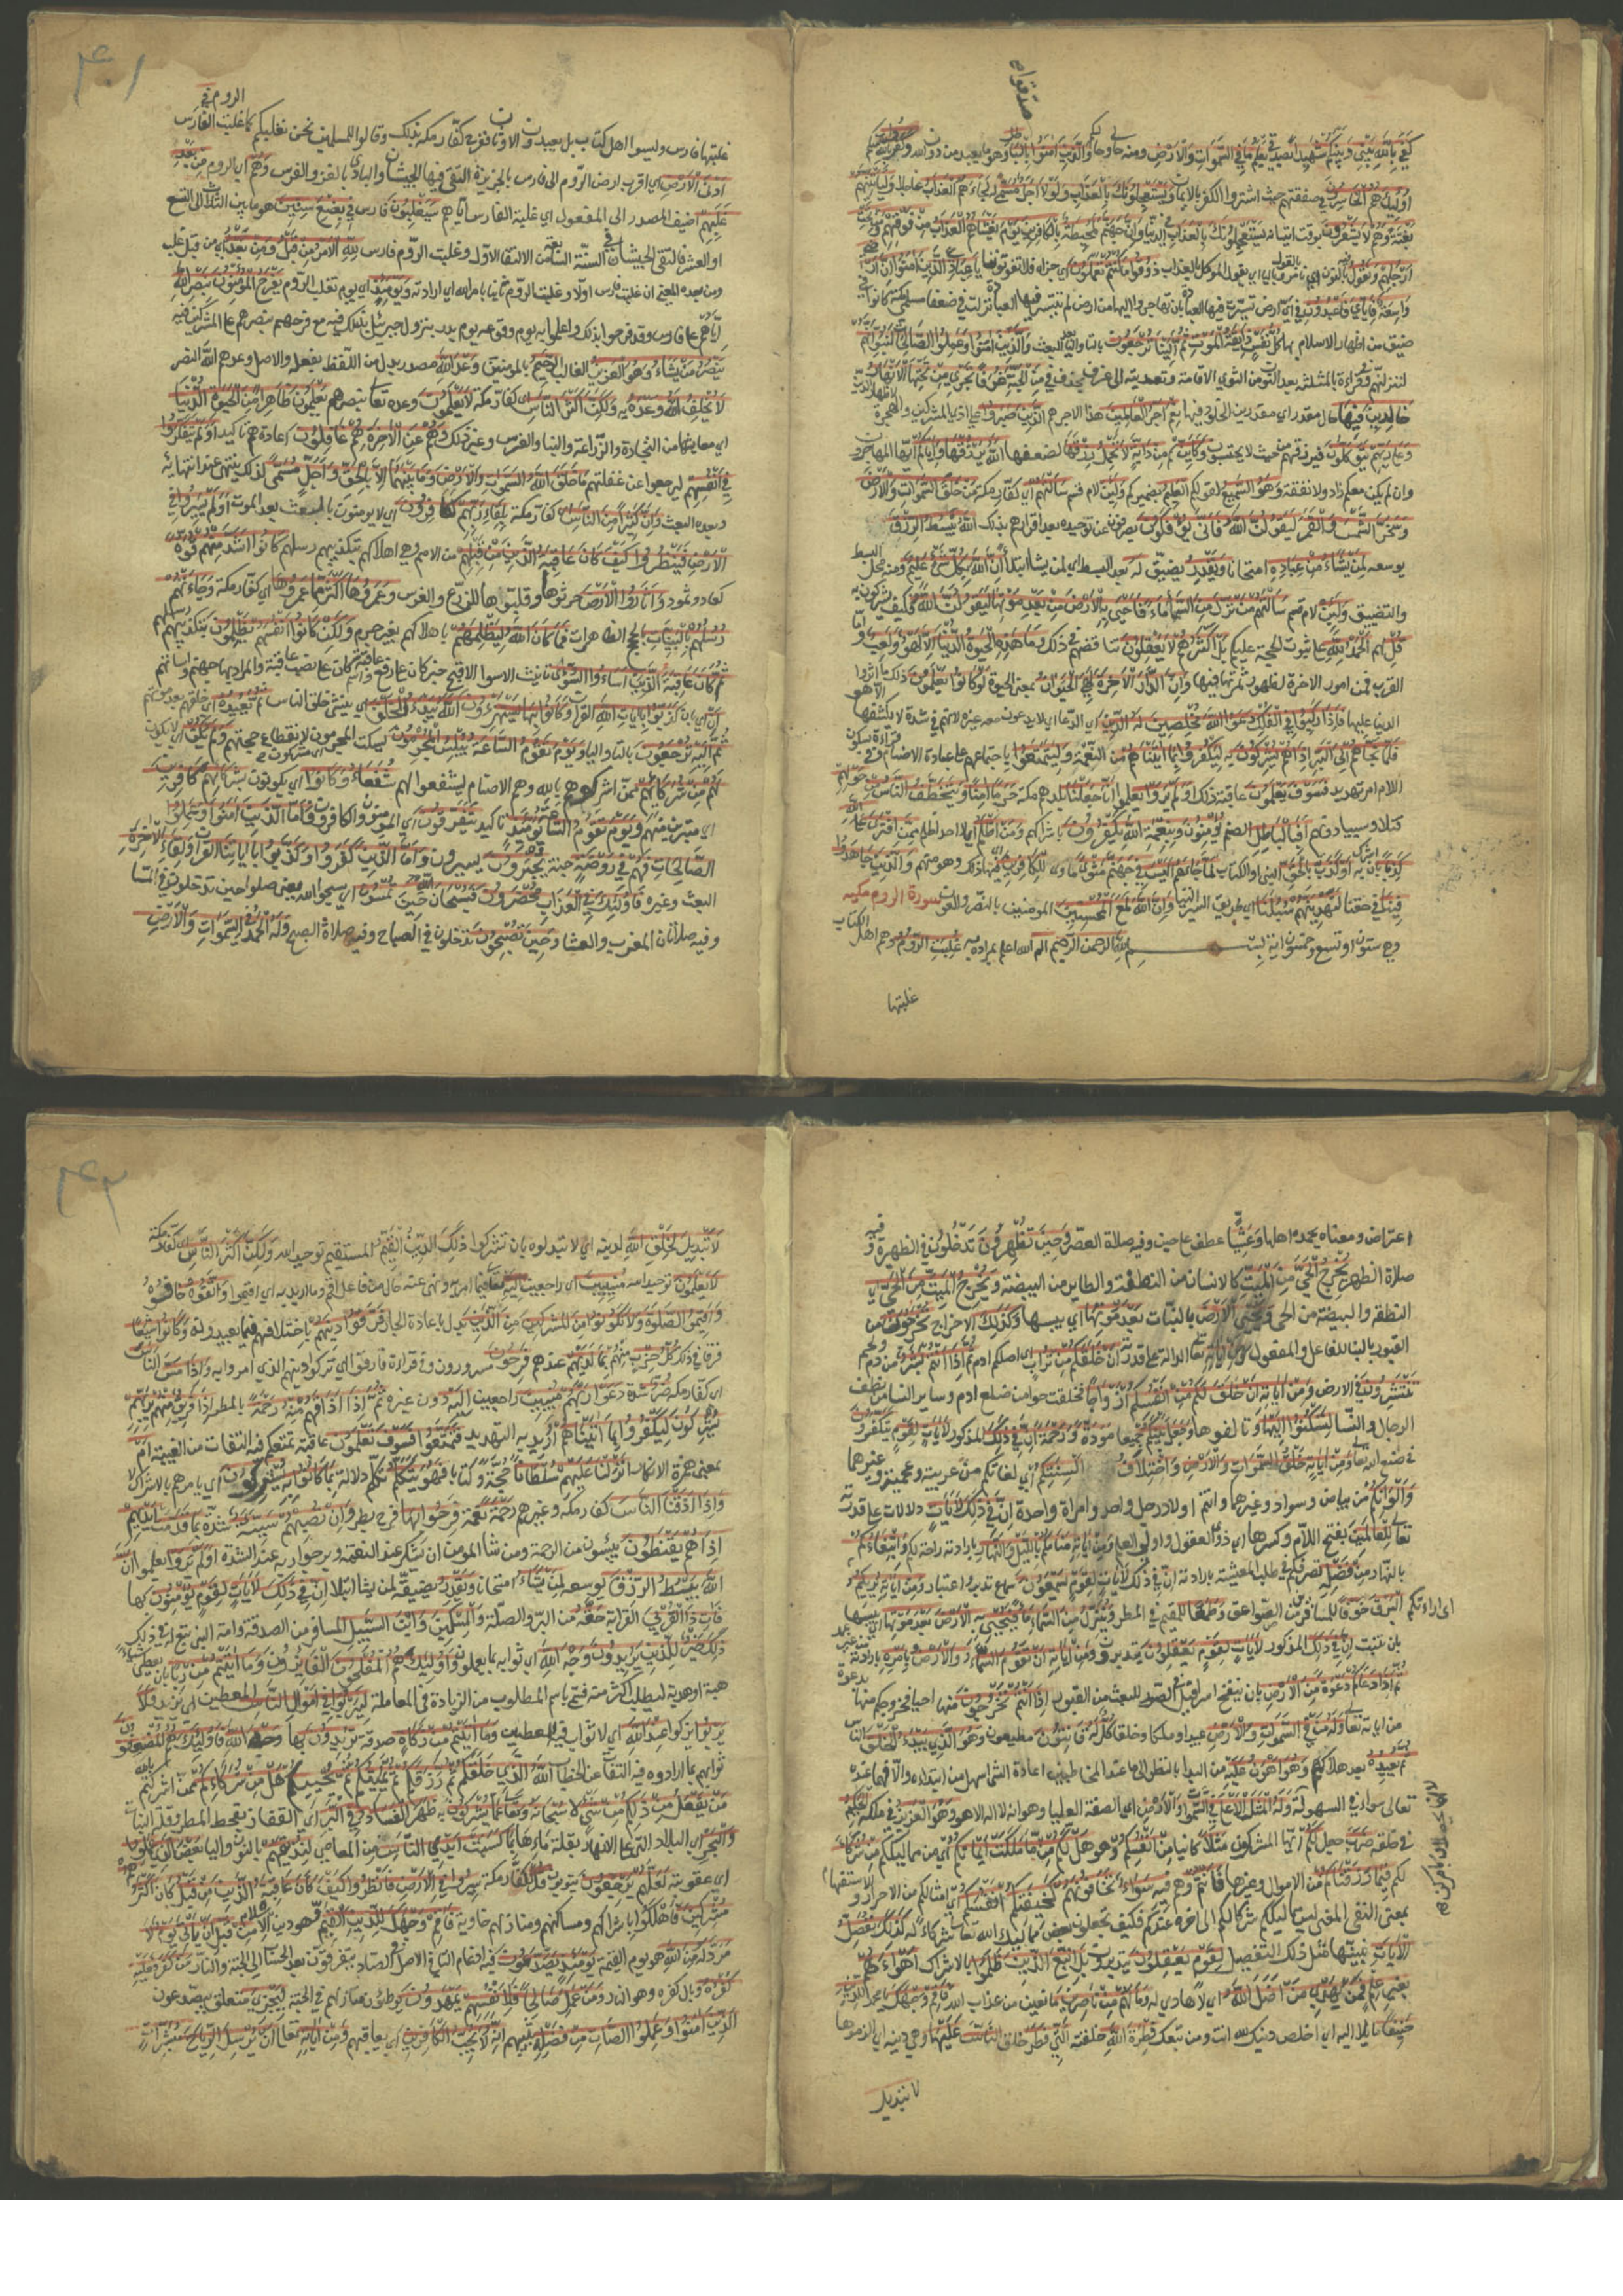 صدق قواه
كفى بالله بيني وبينكم شهيدا بصدقي يعلم ما في السموات والارض ومنه حالي وحالكم والذين امنوا بالباطل وهو ما يعبد من دون الله وكفروا بالله منكم
اولئك هم الخاسرون في صفقتهم حيث اشتروا الكفر بالايمان ويستعجلونك بالعذاب ولولا اجل مسمى له لجاءهم العذاب عاجلا ولياتينهم
بغتة وهم لا يشعرون بوقت اتيانه يستعجلونك بالعذاب في الدنيا وان جهنم لمحيطة بالكافرين يوم يغشاهم العذاب من فوقهم ومن تحت
ارجلهم ونقول بالنون اي نامر بالقول وباليا اي يقول الموكل بالعذاب ذوقوا ما كنتم تعملون اي جزاه فلا تفوتوننا يا عبادي الذين امنوا ان ارضي
واسعة فاياي فاعبدون في اي ارض تيسرت فيها العبادة بان تهاجروا اليها من ارض لم تتيسر فيها العبادة نزلت في ضعفا مسلمي مكة كانوا في
ضيق من اظهار الاسلام بها كل نفس ذايقة الموت ثم الينا ترجعون بالتا واليا بعد البعث والذين امنوا وعملوا الصالحات لنبوئنهم
لننزلنهم وفي قراءة بالمثلثة بعد النون من الثوى الاقامة وتعديته الى غرف بحذف في من الجنة غرفا تجري من تحتها الانهار
خالدين فيها حال مقدر اي مقدرين الخلود فيها نعم اجر العاملين هذا الاجر هم الذين صبروا على اذى المشركين والهجرة لاظهار الدين
وعلى ربهم يتوكلون فيرزقهم من حيث لا يحتسبون وكاين كم من دابة لا تحمل رزقها لضعفها الله يرزقها واياكم ايها المهاجرون
وان لم يكن معكم زاد ولا نفقة وهو السميع لقولكم العليم بضميركم ولئن لام قسم سالتهم اي كفار مكة من خلق السموات والارض
وسخر الشمس والقمر ليقولن الله فانى يؤفكون يصرفون عن توحيده بعد اقرارهم بذلك الله يبسط الرزق
يوسعه لمن يشاء من عباده امتحانا ويقدر يضيق له بعد البسط اي لمن يشا ابتلا ان الله بكل شيء عليم ومنه محل البسط
والتضييق ولئن لام قسم سالتهم من نزل من السماء ماء فاحيى به الارض من بعد موتها ليقولن الله فكيف يشركون به
قل لهم الحمد لله على ثبوت الحجة عليكم بل اكثرهم لا يعقلون تناقضهم في ذلك وما هذه الحيوة الدنيا الا لهو ولعب واما
القرب فمن امور الاخرة لظهور ثمرتها فيها وان الدار الاخرة لهي الحيوان بمعنى الحيوة لو كانوا يعلمون ذلك ما اثروا
الدنيا عليها فاذا ركبوا في الفلك دعوا الله مخلصين له الدين اي الدعا اي لا يدعون معه غيره لانهم في شدة لا يكشفها الا هو
فلما نجاهم الى البر اذا هم يشركون به ليكفروا بما اتيناهم من النعمة وليتمتعوا باجتماعهم على عبادة الاصنام وفي قراءة بسكون
اللام امر تهديد فسوف يعلمون عاقبة ذلك اولم يروا يعلموا انا جعلنا بلدهم مكة حرما امنا ويتخطف الناس من حولهم
قتلا وسبيا دونهم افبالباطل الصنم يؤمنون وبنعمة الله يكفرون باشراكهم ومن اظلم اي لا احد اظلم ممن افترى على الله
كذبا بان اشرك به او كذب بالحق النبي او الكتاب لما جاءه اليس في جهنم مثوى ماوى للكافرين اي فيها ذلك وهو منهم والذين جاهدوا
فينا في حقنا لنهدينهم سبلنا اي طريق السير الينا وان الله لمع المحسنين المومنين بالنصر والعون سورة الروم مكيه
وهي ستون او تسع وخمسون اية بسم الله الرحمن الرحيم الم الله اعلم بمراده به غلبت الروم وهم اهل الكتاب
غلبتها
٤١
غلبتها فارس وليسوا اهل كتاب بل يعبدون الاوثان ففرح كفار مكة بذلك وقالوا للمسلمين نحن نغلبكم كما غلبت الفارس الروم في
ادنى الارض اي اقرب ارض الروم الى فارس بالجزيرة التقى فيها الجيشان والبادي بالغزو الفرس وهم اي الروم من بعد
غلبهم اضيف المصدر الى المفعول اي غلبة الفارس اياهم سيغلبون فارس في بضع سنين هو ما بين الثلاث الى التسع
او العشر فالتقى الجيشان في السنة السابعة من الالتقا الاول وغلبت الروم فارس لله الامر من قبل ومن بعد اي من قبل غلب
ومن بعده المعنى ان غلبة فارس اولا وغلبة الروم ثانيا بامر الله اي ارادته ويومئذ اي يوم تغلب الروم يفرح المؤمنون بنصر الله
اياهم على فارس وقد فرحوا بذلك وعلموا به يوم وقوعه يوم بدر بنزول جبرئيل بذلك فيه مع فرحهم بنصرهم على المشركين فيه
ينصر من يشاء وهو العزيز الغالب الرحيم بالمومنين وعد الله مصدر بدل من اللفظ بفعله والاصل وعدهم الله النصر
لا يخلف الله وعده به ولكن اكثر الناس اي كفار مكة لا يعلمون وعده تعالى بنصرهم يعلمون ظاهرا من الحيوة الدنيا
اي معايشها من التجارة والزراعة والبنا والغرس وغير ذلك وهم عن الاخرة هم غافلون اعادة هم تاكيد اولم يتفكروا
في انفسهم ليرجعوا عن غفلتهم ما خلق الله السموات والارض وما بينهما الا بالحق واجل مسمى لذلك ينتهى عند انتهائه
وبعده البعث وان كثيرا من الناس اي كفار مكة بلقاء ربهم لكافرون اي لا يومنون بالبعث بعد الموت اولم يسيروا في
الارض فينظروا كيف كان عاقبة الذين من قبلهم من الامم وهي اهلاكهم بتكذيبهم رسلهم كانوا اشد منهم قوة
كعاد وثمود واثاروا الارض حرثوها وقلبوها للزرع والغرس وعمروها اكثر مما عمروها اي كفار مكة وجاءتهم
رسلهم بالبينات بالحجج الظاهرات فما كان الله ليظلمهم باهلاكهم بغير جرم ولكن كانوا انفسهم يظلمون بتكذيبهم رسلهم
ثم كان عاقبة الذين اساءوا السوءى تانيث الاسوا الاقبح خبر كان على رفع عاقبة واسم كان على نصب عاقبة والمراد بها جهنم واساتهم
ان اي بان كذبوا بايات الله القران وكانوا بها يستهزءون الله يبدء الخلق اي ينشئ خلق الناس ثم يعيده اي خلقهم بعد موتهم
ثم اليه ترجعون بالتا واليا ويوم تقوم الساعة يبلس المجرمون يسكت المجرمون لانقطاع حجتهم ولم يكن اي لا يكون
لهم من شركائهم ممن اشركوهم بالله وهم الاصنام ليشفعوا لهم شفعاء وكانوا اي يكونون بشركائهم كافرين
اي متبرين منهم ويوم تقوم الساعة يومئذ تاكيد يتفرقون اي المومنون والكافرون فاما الذين امنوا وعملوا
الصالحات فهم في روضة جنة يحبرون يسرون واما الذين كفروا وكذبوا باياتنا القران ولقاء الاخرة
البعث وغيره فاولئك في العذاب محضرون فسبحان الله حين تمسون اي سبحوا الله بمعنى صلوا حين تدخلون في المسا
وفيه صلاتان المغرب والعشا وحين تصبحون تدخلون في الصباح وفيه صلاة الصبح وله الحمد في السموات والارض
اعتراض ومعناه يحمده اهلها وعشيا عطف على حين وفيه صلاة العصر وحين تظهرون تدخلون في الظهيرة وفيه
صلاة الظهر يخرج الحي من الميت كالانسان من النطفة والطاير من البيضة ويخرج الميت من الحي اي
النطفة والبيضة من الحي ويحيي الارض بالنبات بعد موتها اي يبسها وكذلك الاخراج تخرجون من
القبور بالبنا للفاعل والمفعول ومن اياته تعالى الدالة على قدرته ان خلقكم من تراب اي اصلكم ادم ثم اذا انتم بشر من دم ولحم
تنتشرون في الارض ومن اياته ان خلق لكم من انفسكم ازواجا فخلقت حوا من ضلع ادم وساير النسا من نطف
الرجال والنسا لتسكنوا اليها وتالفوها وجعل بينكم جميعا مودة ورحمة ان في ذلك المذكور لايات لقوم يتفكرون
في صنع الله تعالى ومن اياته خلق السموات والارض واختلاف السنتكم اي لغاتكم من عربية وعجمية وغيرهما
والوانكم من بياض وسواد وغيرهما وانتم اولاد رجل واحد وامراة واحدة ان في ذلك لايات دلالات على قدرته
تعالى للعالمين بفتح اللام وكسرها اي ذوي العقول واولي العلم ومن اياته منامكم بالليل والنهار بارادته راحة لكم وابتغاءكم
بالنهار من فضله تصرفكم في طلب المعيشة بارادته ان في ذلك لايات لقوم يسمعون سماع تدبر واعتبار ومن اياته يريكم
اي اراءتكم البرق خوفا للمسافر من الصواعق وطمعا للمقيم في المطر وينزل من السماء ماء فيحيي به الارض بعد موتها اي يبسها
بان تنبت ان في ذلك المذكور لايات لقوم يعقلون يتدبرون ومن اياته ان تقوم السماء والارض بامره بارادته من غير عمد
ثم اذا دعاكم دعوة من الارض بان ينفخ اسرافيل في الصور للبعث من القبور اذا انتم تخرجون منها احيا فخروجكم منها بدعوة
من اياته تعالى وله من في السموات والارض عبيدا وملكا وخلقا كل له قانتون مطيعون وهو الذي يبدء الخلق للناس
ثم يعيده بعد هلاكهم وهو اهون عليه من البدا بالنظر الى ما عند المخاطبين اعادة الشي اسهل من ابتداءه والا فهما عنده
تعالى سواء في السهولة وله المثل الاعلى في السموات والارض اي الصفة العليا وهو انه لا اله الا هو وهو العزيز في ملكه الحكيم
في خلقه ضرب جعل لكم ايها المشركون مثلا كاينا من انفسكم وهو هل لكم من ما ملكت ايمانكم اي من مماليككم من شركاء
لكم فيما رزقناكم من الاموال وغيرها فانتم وهم فيه سواء تخافونهم كخيفتكم انفسكم اي امثالكم من الاحرار والاستفهام
بمعنى النفي المعنى ليس مماليككم شركا لكم الى اخره عندكم فكيف تجعلون بعض مماليك الله تعالى شركاء له كذلك نفصل
الايات نبينها مثل ذلك التفصيل لقوم يعقلون يتدبرون بل اتبع الذين ظلموا بالاشراك اهواءهم
بغير علم فمن يهدي من اضل الله اي لا هادي له وما لهم من ناصرين مانعين من عذاب الله فاقم وجهك يا محمد للدين
حنيفا مايلا اليه اي اخلص دينك لله انت ومن تبعك فطرة الله خلقته التي فطر خلق الناس عليها وهي دينه اي الزموها
لا تبديل
٤٢
لا تبديل لخلق الله لدينه اي لا تبدلوه بان تشركوا ذلك الدين القيم المستقيم توحيد الله ولكن اكثر الناس اي كفار مكة
لا يعلمون توحيد الله منيبين اي راجعين اليه تعالى فيما امر به ونهى عنه حال من فاعل اقم وما اريد به اي اقيموا واتقوه خافوه
واقيموا الصلوة ولا تكونوا من المشركين من الذين بدل باعادة الجار فرقوا دينهم باختلافهم فيما يعبدونه وكانوا شيعا
فرقا في ذلك كل حزب منهم بما لديهم عندهم فرحون مسرورون وفي قراءة فارقوا اي تركوا دينهم الذي امروا به واذا مس الناس
اي كفار مكة ضر شدة دعوا ربهم منيبين راجعين اليه دون غيره ثم اذا اذاقهم منه رحمة بالمطر اذا فريق منهم بربهم
يشركون ليكفروا بما اتيناهم اريد به التهديد فتمتعوا فسوف تعلمون عاقبة تمتعكم فيه التفات من الغيبة ام
بمعنى همزة الانكار انزلنا عليهم سلطانا حجة وكتابا فهو يتكلم تكلم دلالة بما كانوا به يشركون اي يامرهم بالاشراك لا
واذا اذقنا الناس كفار مكة وغيرهم رحمة نعمة فرحوا بها فرح بطر وان تصبهم سيئة شدة بما قدمت ايديهم
اذا هم يقنطون يئسون من الرحمة ومن شان المومن ان يشكر عند النعمة ويرجو ربه عند الشدة اولم يروا يعلموا ان
الله يبسط الرزق يوسعه لمن يشاء امتحانا ويقدر يضيقه لمن يشا ابتلا ان في ذلك لايات لقوم يؤمنون بها
فات ذا القربى القرابة حقه من البر والصلة والمسكين وابن السبيل المسافر من الصدقة وامة النبي تبع له في ذلك
ذلك خير للذين يريدون وجه الله اي ثوابه بما يعملون واولئك هم المفلحون الفايزون وما اتيتم من ربا بان يعطى شي
هبة او هدية ليطلب اكثر منه فسمي باسم المطلوب من الزيادة في المعاملة ليربوا في اموال الناس المعطين اي يزيد فلا
يربوا يزكوا عند الله اي لا ثواب فيه للمعطين وما اتيتم من زكاة صدقة تريدون بها وجه الله فاولئك هم المضعفون
ثوابهم بما ارادوه فيه التفات عن الخطاب الله الذي خلقكم ثم رزقكم ثم يميتكم ثم يحييكم هل من شركائكم ممن اشركتم بالله
من يفعل من ذلكم من شيء لا سبحانه وتعالى عما يشركون به ظهر الفساد في البر اي القفار بقحط المطر وقلة النبات
والبحر اي البلاد التي على الانهار بقلة مائها بما كسبت ايدي الناس من المعاصي لنذيقهم بالنون واليا بعض الذي عملوا
اي عقوبته لعلهم يرجعون يتوبون قل لكفار مكة سيروا في الارض فانظروا كيف كان عاقبة الذين من قبل كان اكثرهم
مشركين فاهلكوا باشراكهم ومساكنهم ومنازلهم خاوية فاقم وجهك للدين القيم فهو دين الاسلام من قبل ان ياتي يوم لا
مرد له من الله هو يوم القيمة يومئذ يصدعون فيه ادغام التا في الاصل في الصاد يتفرقون بعد الحساب الى الجنة والنار من كفر فعليه
كفره وبال كفره وهو النار ومن عمل صالحا فلانفسهم يمهدون يوطئون منازلهم في الجنة ليجزي متعلق بيصدعون
الذين امنوا وعملوا الصالحات من فضله يثيبهم انه لا يحب الكافرين اي يعاقبهم ومن اياته تعالى ان يرسل الرياح مبشرات